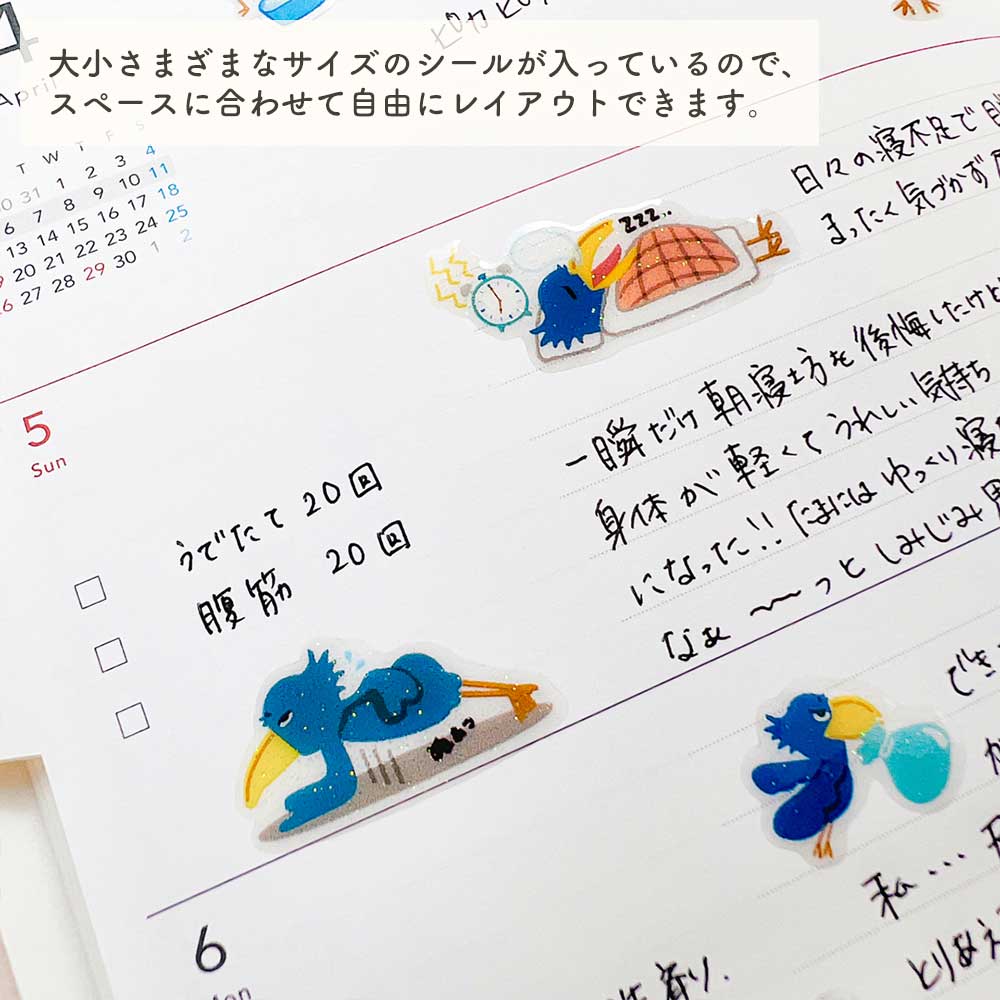 大小さまざまなサイズのシールが入っているので、
スペースに合わせて自由にレイアウトできます。
4
April
T W T F S
31 1 2 3 4
6 7 8 9 10 11
13 14 15 16 17 18
20 21 22 23 24 25
27 28 29 30 1 2
日々の寝不足で
まったく気づかず
zzz..
一瞬だけ朝寝坊を後悔したけど
身体が軽くてうれしい気持ち
になった!!たまにはゆっくり寝
なぁ〜〜っとしみじみ
5
Sun
うでたて 20回
腹筋 20回
でき
私...
とりあえ
6
Mon